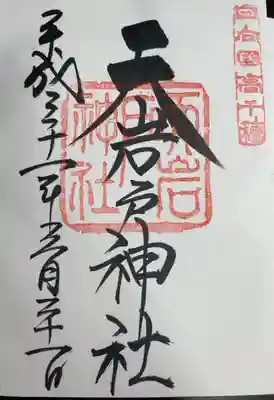 日向國高千穂
天岩戸神社
平成三十一年三月二十一日